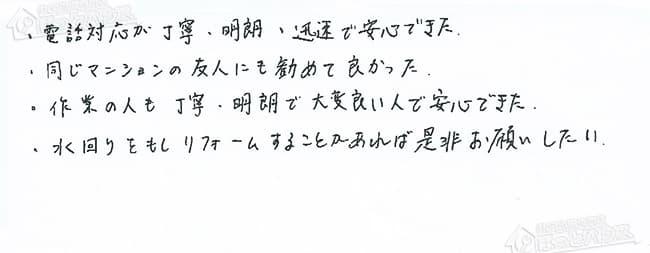 ・電話対応が丁寧・明朗・迅速で安心できた.
・同じマンションの友人にも勧めて良かった.
・作業の人も丁寧・明朗で大変良い人で安心できた.
・水回りをもしリフォームすることがあれば是非お願いしたい.